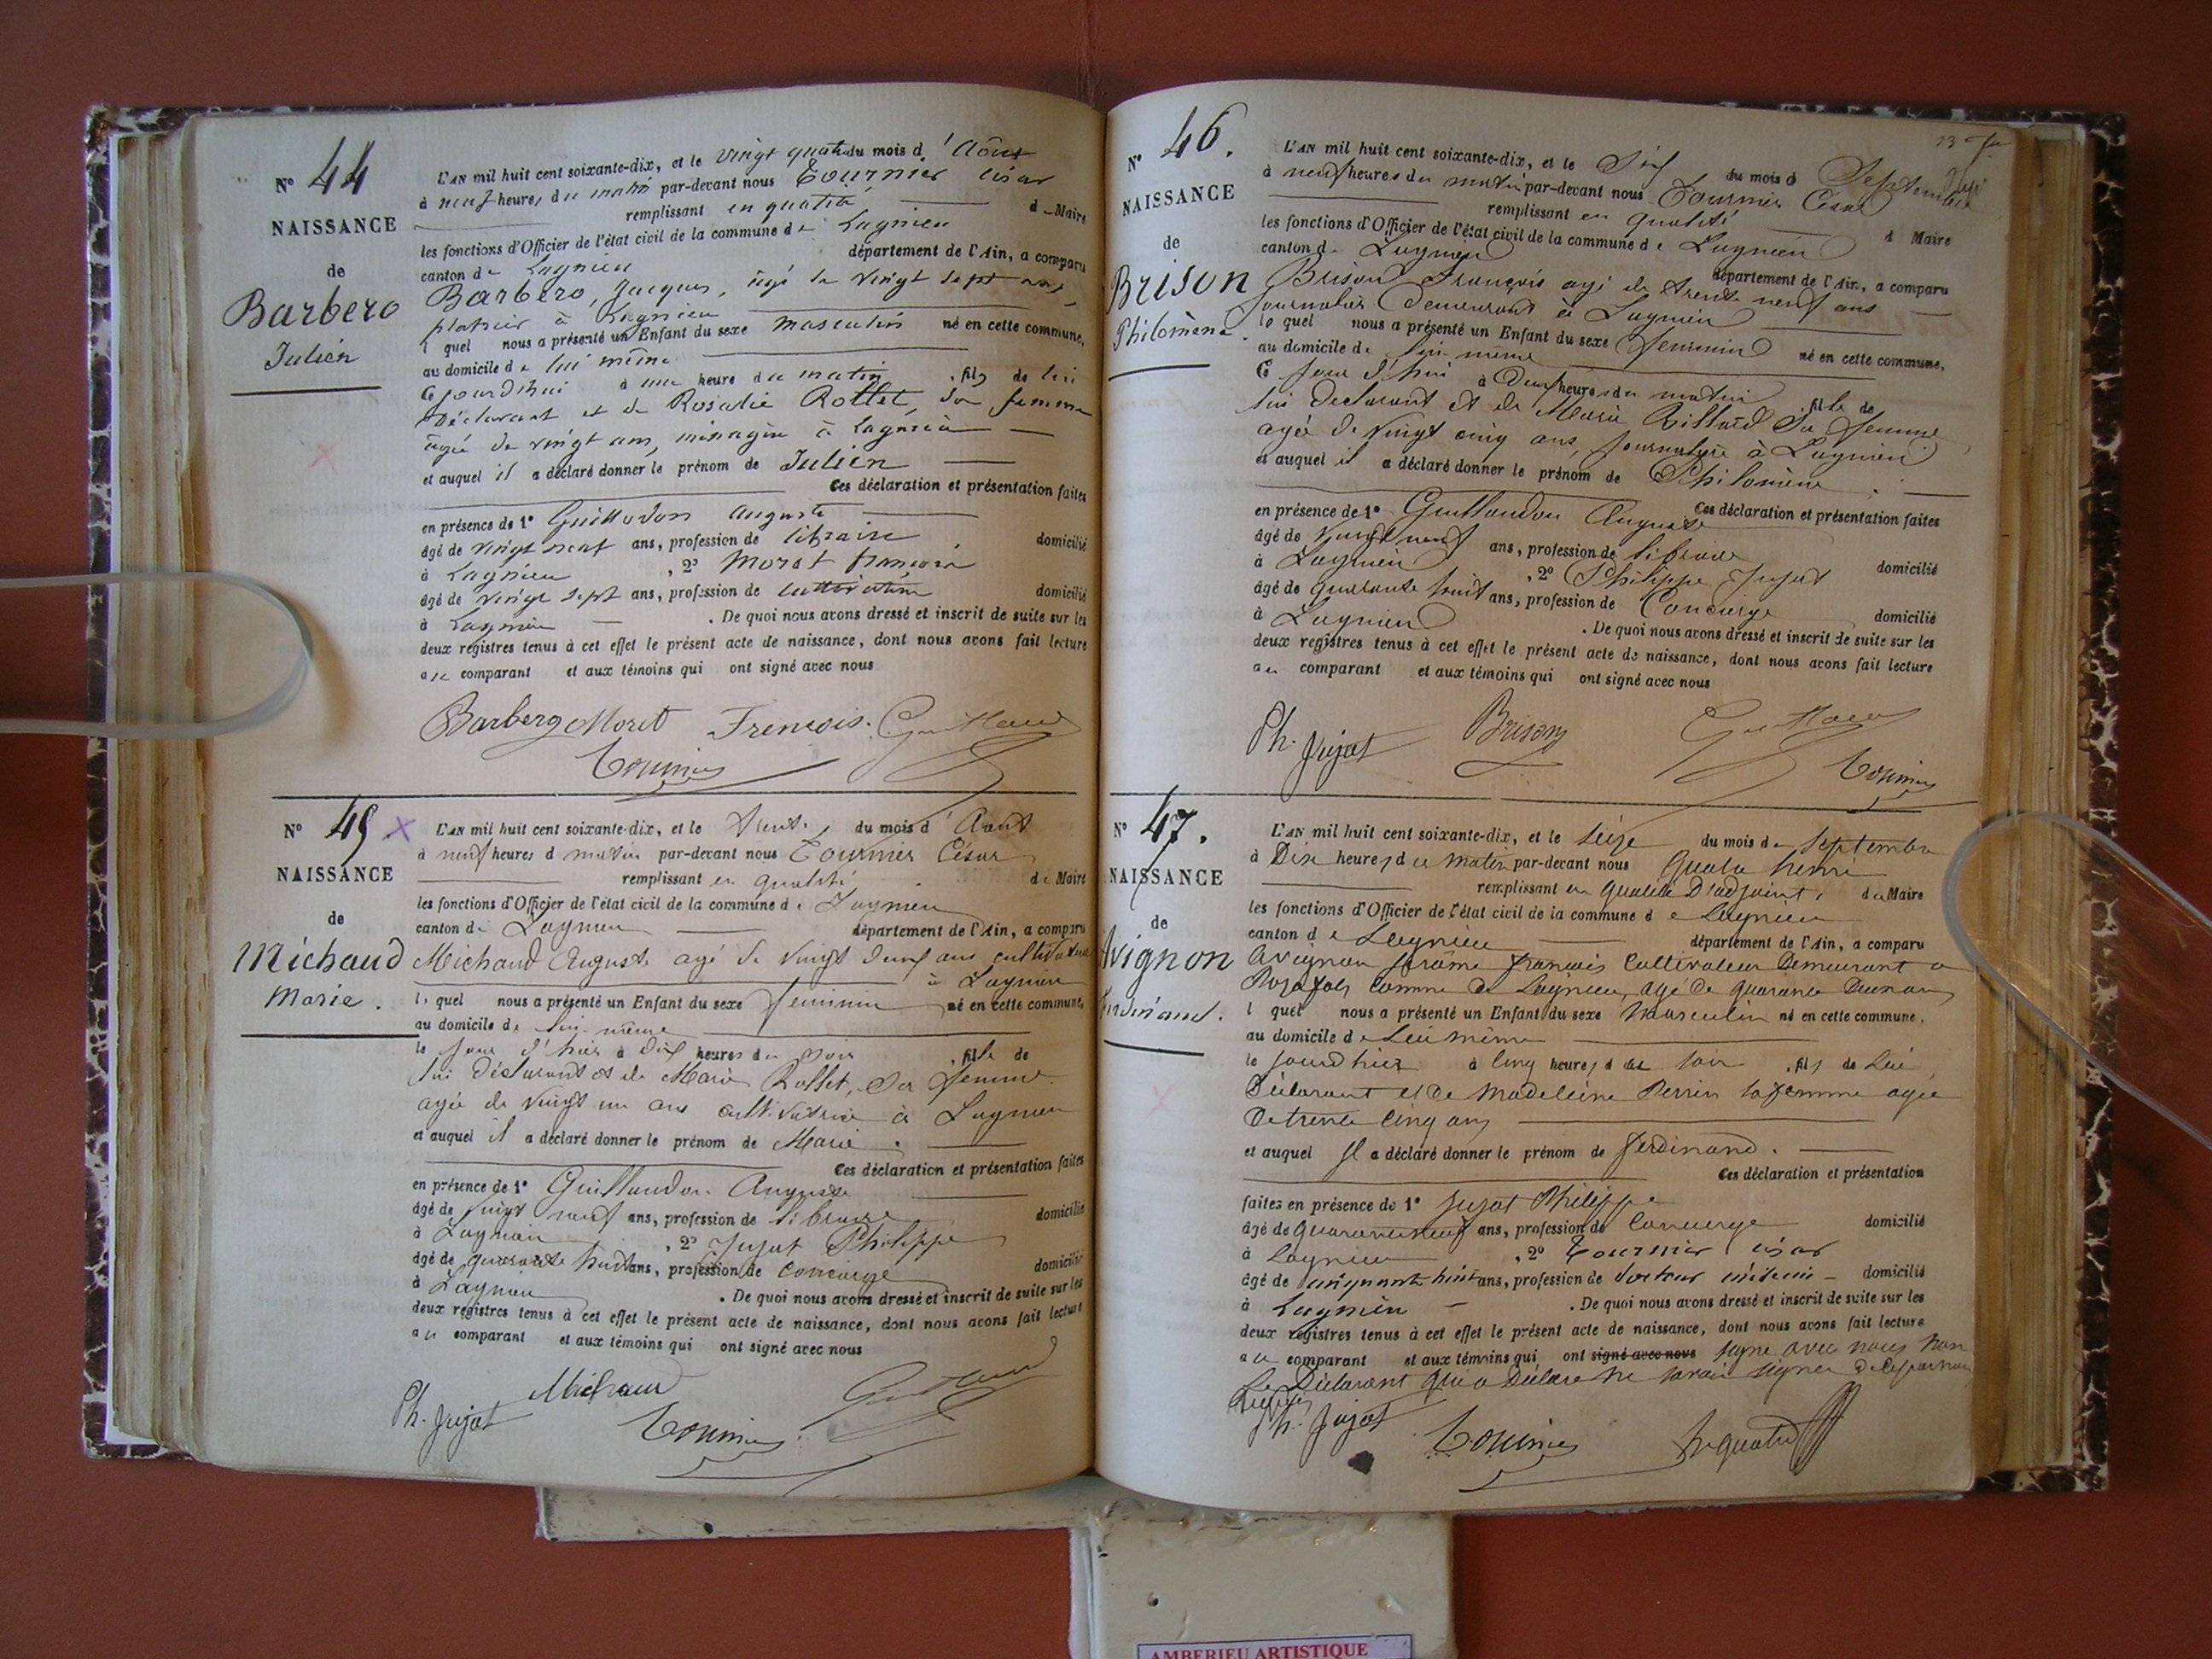 N° 44
NAISSANCE
de
Barbero
Julien
L'AN mil huit cent soixante-dix, et le vingt quatre du mois d'Aôut
à neuf heures du matin par-devant nous Tournier César
remplissant en qualité de Maire
les fonctions d'Officier de l'état civil de la commune de Lagnieu
canton de Lagnieu département de l'Ain, a comparu
Barbero, Jacques, âgé de vingt sept ans,
platrier à Lagnieu
l quel nous a présenté un Enfant du sexe masculin né en cette commune,
au domicile de lui même
Cejourd'hui à une heure du matin, fils de lui
Déclarant et de Rosalie Rollet, sa femme
âgée de vingt ans, ménagère à Lagnieu
et auquel il a déclaré donner le prénom de Julien
Ces déclaration et présentation faites
en présence de 1° Guillodon Auguste
âgé de vingt neuf ans, profession de libraire domicilié
à Lagnieu, 2° Moret françois
âgé de vingt sept ans, profession de domicilié
à Lagnieu. De quoi nous avons dressé et inscrit de suite sur les
deux registres tenus à cet effet le présent acte de naissance, dont nous avons fait lecture
au comparant et aux témoins qui ont signé avec nous
Barbero Moret Frencois.
Tournier
N° 45
NAISSANCE
de
Michaud
Marie.
L'AN mil huit cent soixante-dix, et le trente du mois d'Aout
à neuf heures d matin par-devant nous Tournier César
remplissant en qualité de Maire
les fonctions d'Officier de l'état civil de la commune de Lagnieu
canton de Lagnieu département de l'Ain, a comparu
Michaud Auguste agé de vingt deux ans cultivateur
à Lagnieu
le quel nous a présenté un Enfant du sexe feminin né en cette commune,
au domicile de lui-même
le jour d'hier à dix heures du soir, fille de
lui déclarant et de Marie Rollet, sa femme
agée de vingt un ans cultivatrice à Lagnieu
et auquel il a déclaré donner le prénom de Marie.
Ces déclaration et présentation faites
en présence de 1° Guillaudon Auguste
âgé de vingt neuf ans, profession de libraire domicilié
à Lagnieu, 2° Jujat Philippe
âgé de quarante huit ans, profession de concierge domicilié
à Lagnieu. De quoi nous avons dressé et inscrit de suite sur les
deux registres tenus à cet effet le présent acte de naissance, dont nous avons fait lecture
au comparant et aux témoins qui ont signé avec nous
Ph. Jujat Michaud
Tournier
N° 46.
NAISSANCE
de
Brison
Philomène.
L'AN mil huit cent soixante-dix, et le du mois d Septembre
à neuf heures du matin par-devant nous Tournier César
remplissant en qualité d Maire
les fonctions d'Officier de l'état civil de la commune de Lagnieu
canton de Lagnieu département de l'Ain, a comparu
Brison François agé de trente neuf ans
journalier demeurant à Lagnieu
le quel nous a présenté un Enfant du sexe feminin né en cette commune,
au domicile de lui-même
Ce jour d'hui à deux heures du matin, fille de
lui déclarant et de Marie Billard Sa femme
agée de vingt cinq ans, journalière à Lagnieu
et auquel il a déclaré donner le prénom de Philomène.
Ces déclaration et présentation faites
en présence de 1° Guillaudon Auguste
âgé de vingt neuf ans, profession de libraire domicilié
à Lagnieu, 2° Philippe Jujat
âgé de quarante huit ans, profession de Concierge domicilié
à Lagnieu. De quoi nous avons dressé et inscrit de suite sur les
deux registres tenus à cet effet le présent acte de naissance, dont nous avons fait lecture
au comparant et aux témoins qui ont signé avec nous
Ph. Jujat Brison
Tournier
N° 47.
NAISSANCE
de
Avignon
Ferdinand.
L'AN mil huit cent soixante-dix, et le seize du mois de Septembre
à Dix heures du matin par-devant nous Quatu henri
remplissant en qualité D'adjoint, du Maire
les fonctions d'Officier de l'état civil de la commune de Lagnieu
canton de Lagnieu département de l'Ain, a comparu
Avignon Jérôme françois Cultivateur Demeurant a
Comune de Lagnieu, agé de quarante Deux ans
l quel nous a présenté un Enfant du sexe Masculin né en cette commune,
au domicile de Lui même
le jourd hier à Cinq heures du soir, fils de Lui
Déclarant et De Madeleine Perrin sa femme agée
De trente Cinq ans
et auquel Il a déclaré donner le prénom de ferdinand.
Ces déclaration et présentation
faites en présence de 1° Jujat Philippe
âgé de quarante neuf ans, profession de Concierge domicilié
à Lagnieu, 2° Tournier César
âgé de cinquante huit ans, profession de docteur médecin domicilié
à Lagnieu. De quoi nous avons dressé et inscrit de suite sur les
deux registres tenus à cet effet le présent acte de naissance, dont nous avons fait lecture
au comparant et aux témoins qui ont signé avec nous signé avec nous non
Le Déclarant qui a Déclaré ne savoir signer
Ph. Jujat Tournier
AMBERIEU ARTISTIQUE